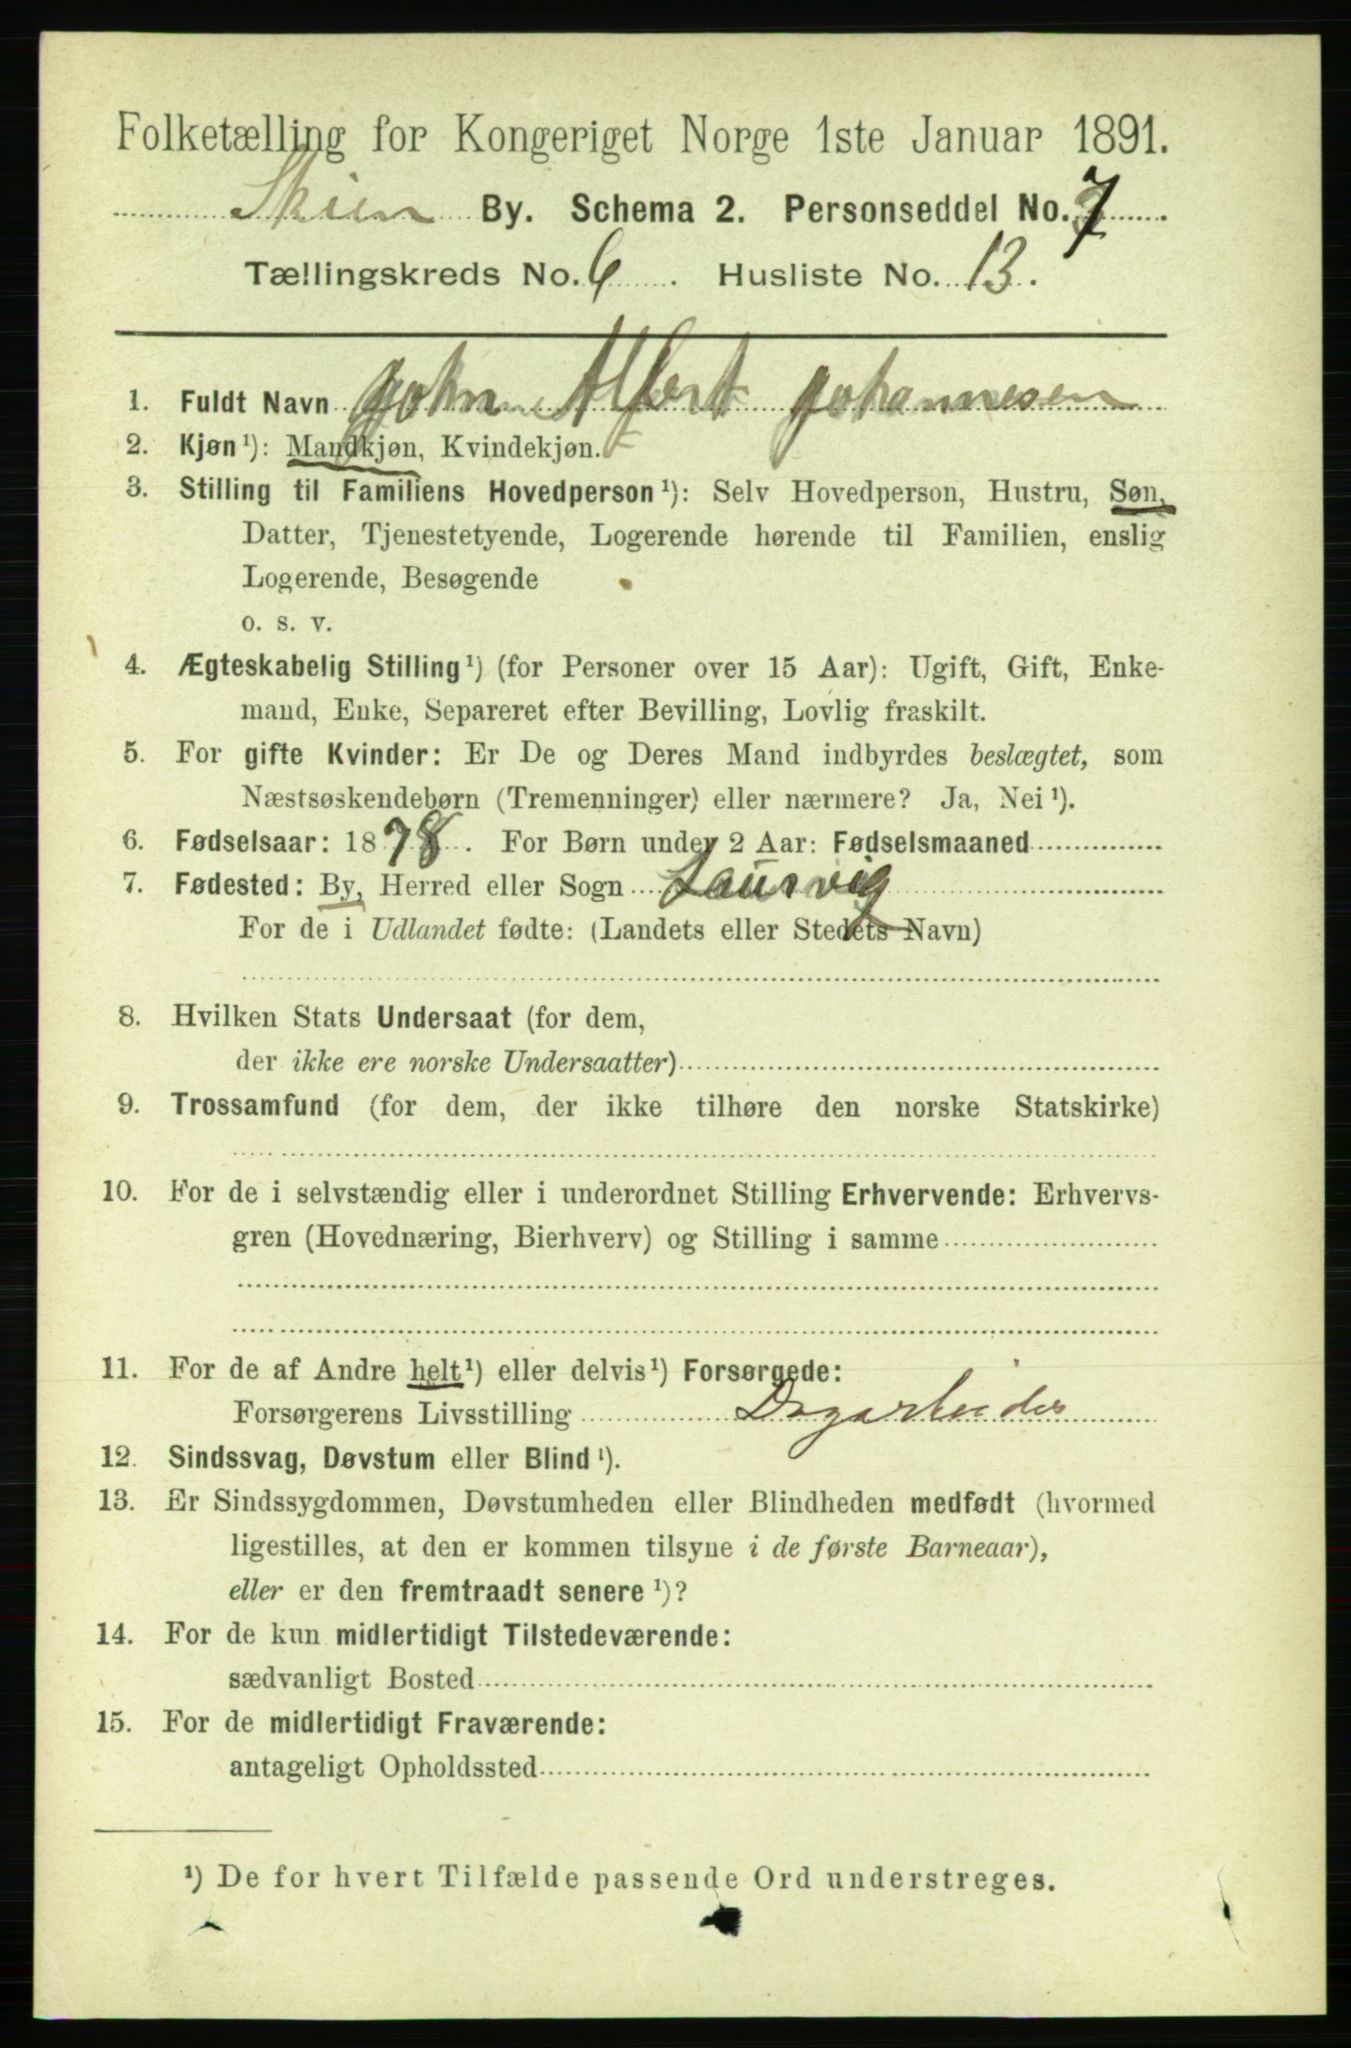 Folketælling for Kongeriget Norge 1ste Januar 1891.
Skien By. Schema 2. Personseddel No. 7
Tællingskreds No. 6. Husliste No. 13.
1. Fuldt Navn John Alfert Johannesen
2. Kjøn¹): Mandkjøn, Kvindekjøn.
3. Stilling til Familiens Hovedperson¹): Selv Hovedperson, Hustru, Søn,
Datter, Tjenestetyende, Logerende hørende til Familien, enslig
Logerende, Besøgende
o. s. v.
4. Ægteskabelig Stilling¹) (for Personer over 15 Aar): Ugift, Gift, Enke-
mand, Enke, Separeret efter Bevilling, Lovlig fraskilt.
5. For gifte Kvinder: Er De og Deres Mand indbyrdes beslægtet, som
Næstsøskendebørn (Tremenninger) eller nærmere? Ja, Nei¹).
6. Fødselsaar: 1878. For Børn under 2 Aar: Fødselsmaaned
7. Fødested: By, Herred eller Sogn Laurvig
For de i Udlandet fødte: (Landets eller Stedets Navn)
8. Hvilken Stats Undersaat (for dem,
der ikke ere norske Undersaatter)
9. Trossamfund (for dem, der ikke tilhøre den norske Statskirke)
10. For de i selvstændig eller i underordnet Stilling Erhvervende: Erhvervs-
gren (Hovednæring, Bierhverv) og Stilling i samme
11. For de af Andre helt¹) eller delvis¹) Forsørgede:
Forsørgerens Livsstilling Dagarbeider
12. Sindssvag, Døvstum eller Blind¹).
13. Er Sindssygdommen, Døvstumheden eller Blindheden medfødt (hvormed
ligestilles, at den er kommen tilsyne i de første Barneaar),
eller er den fremtraadt senere¹)?
14. For de kun midlertidigt Tilstedeværende:
sædvanligt Bosted
15. For de midlertidigt Fraværende:
antageligt Opholdssted
¹) De for hvert Tilfælde passende Ord understreges.